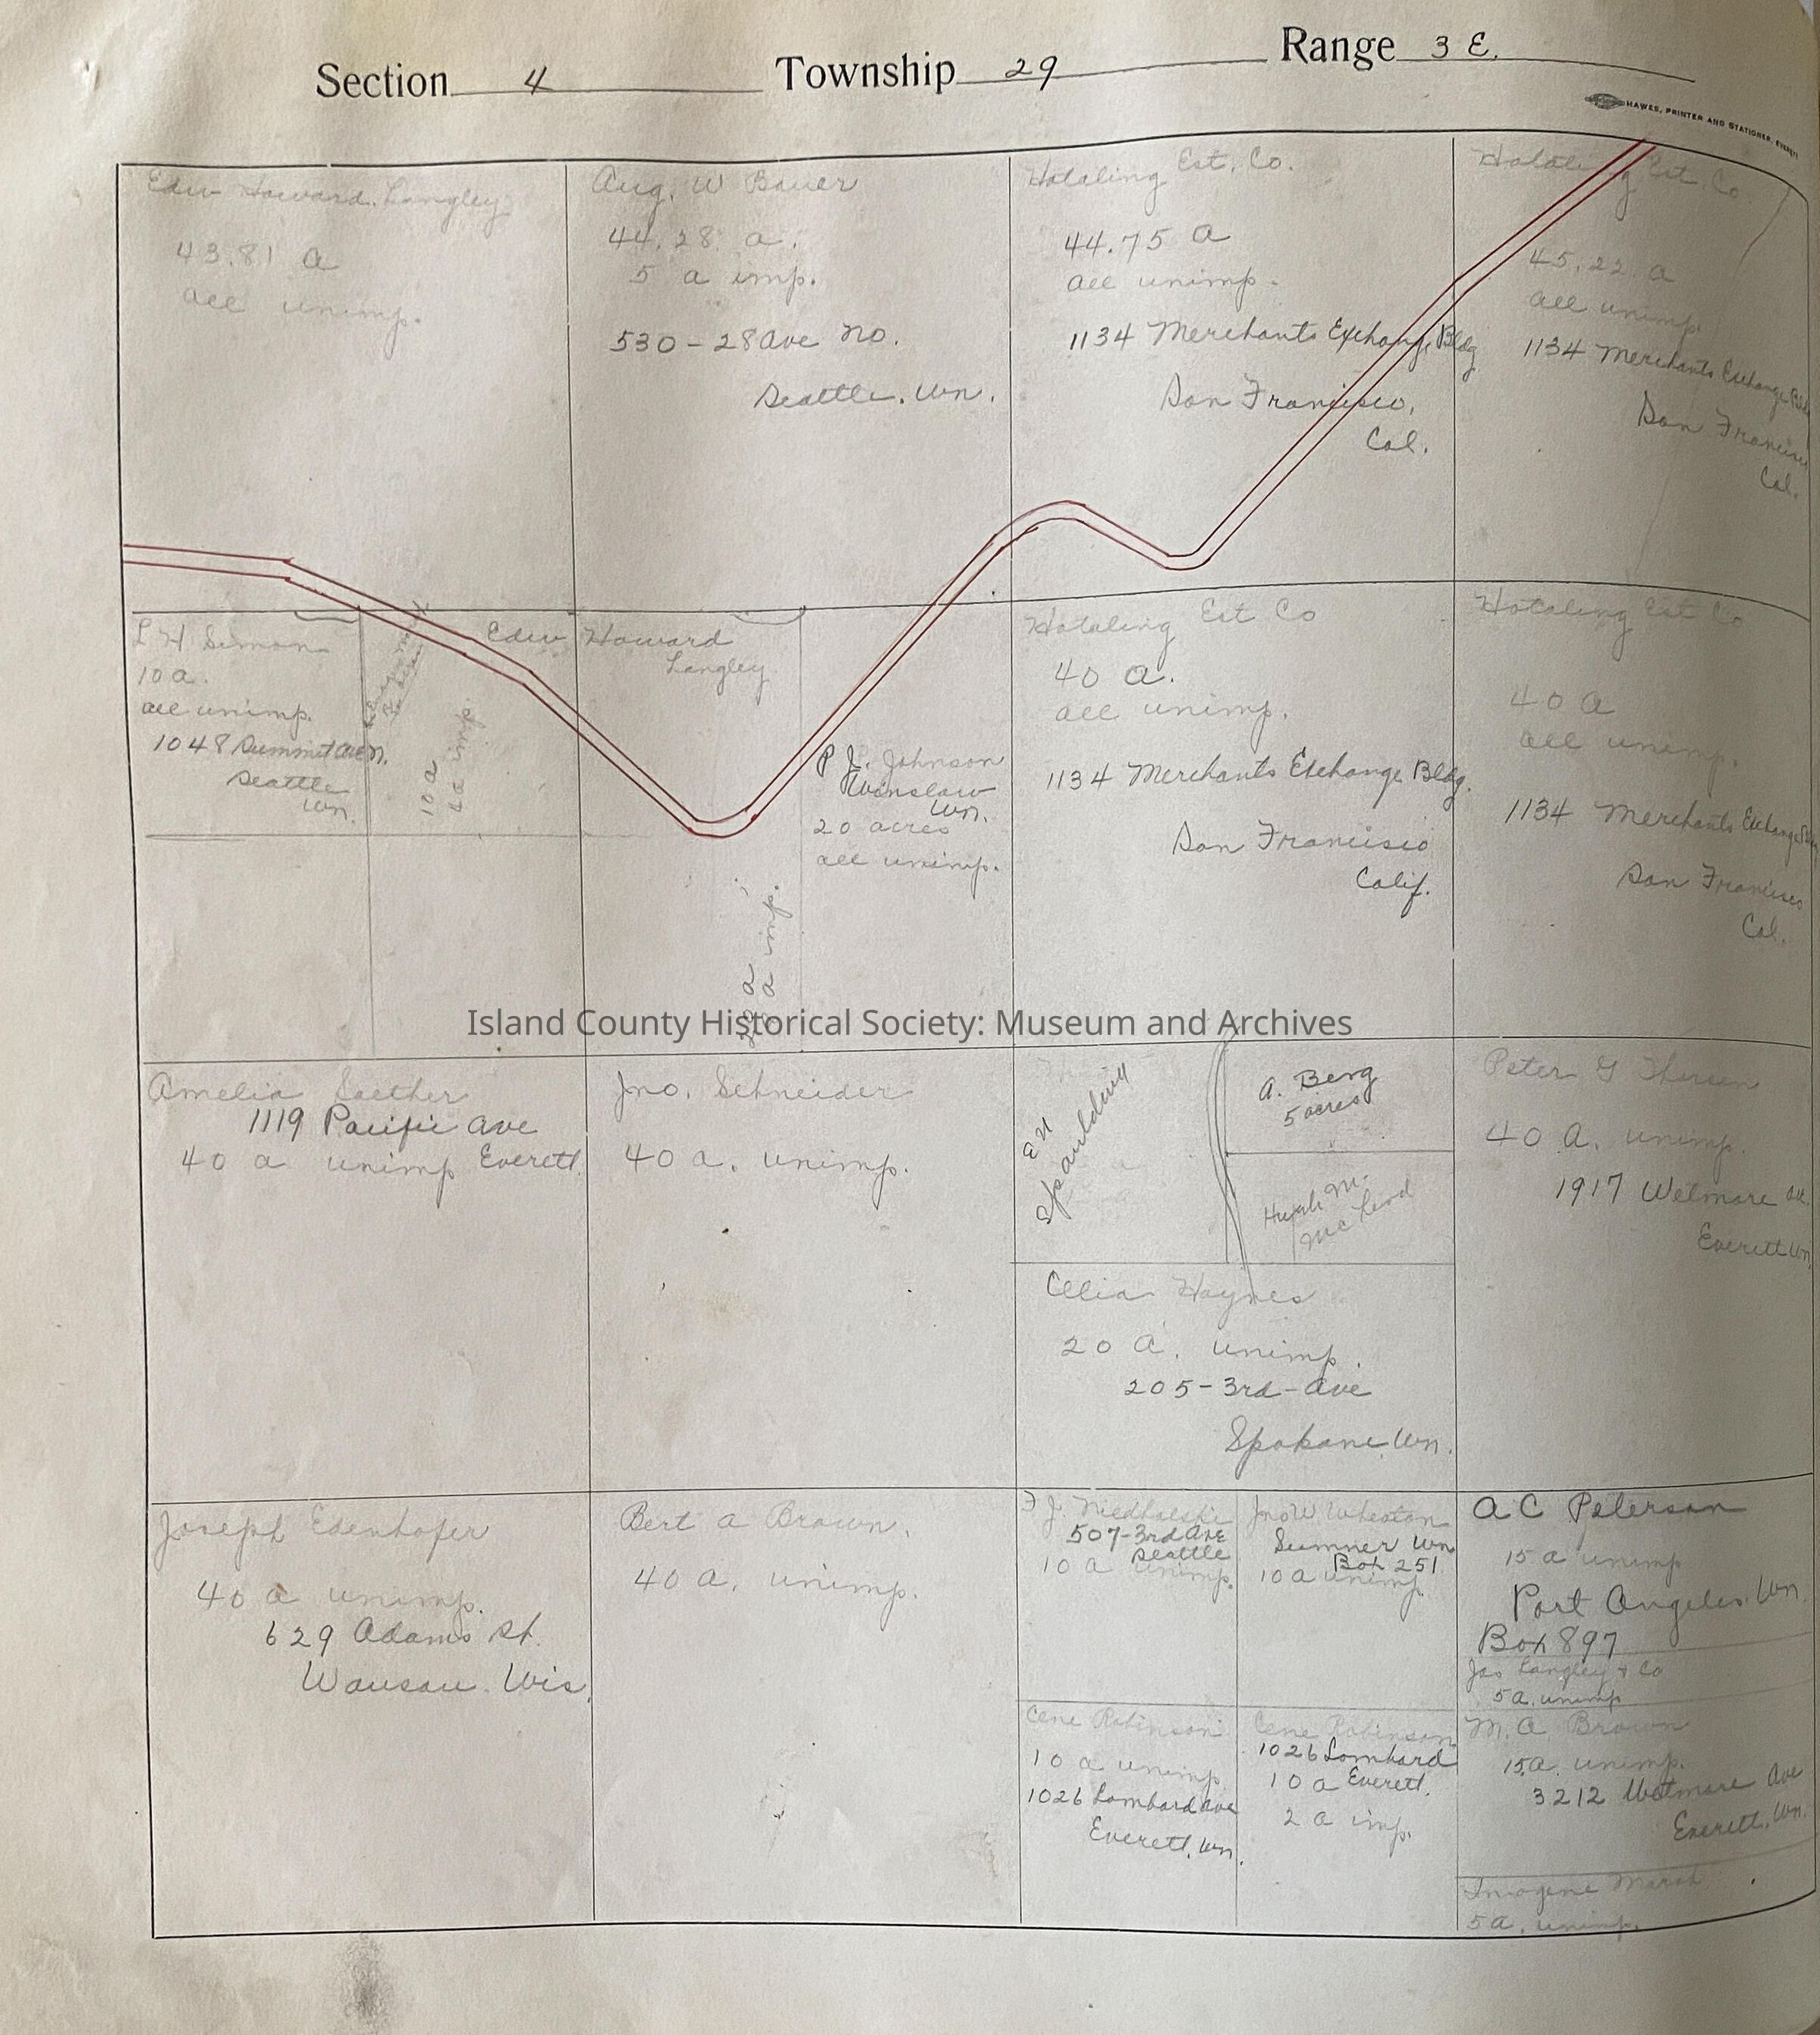 Section 4 Township 29 Range 3 E.
HAWES, PRINTER AND STATIONER, EVERETT
Edw Howard Langley
43.81 a
all unimp.
Aug. W Bauer
44.28 a.
5 a imp.
530-28 Ave No.
Seattle, Wn.
Hotaling Est. Co.
44.75 a
all unimp.
1134 Merchants Exchange Bldg
San Francisco,
Cal.
Hotaling Est Co
45.22 a
all unimp.
1134 Merchants Exchange Bldg
San Francisco
Cal.
L H Simon
10 a.
all unimp.
1048 Summit Ave N.
Seattle
Wn.
10 a
imp.
Edw Howard
Langley
a imp.
P J. Johnson
Winslow
Wn.
20 acres
all unimp.
Hotaling Est Co
40 a.
all unimp.
1134 Merchants Exchange Bldg.
San Francisco
Calif.
Hotaling Est Co
40 a
all unimp.
1134 Merchants Exchange Bldg
San Francisco
Cal.
Island County Historical Society: Museum and Archives
Amelia Saether
1119 Pacific Ave
40 a unimp Everett.
Jno. Schneider
40 a. unimp.
E N
Spaulding
A. Berg
5 acres
Hugh M.
McLeod
Celia Haynes
20 A. unimp.
205-3rd-Ave
Spokane, Wn.
Peter G Thorsen
40 A. unimp.
1917 Wetmore Ave.
Everett Wn.
Joseph Edenhofer
40 a unimp.
629 Adams St.
Wausau. Wis.
Bert A Brown.
40 a. unimp.
F J. Niedhalski
507-3rd Ave
Seattle
10 a unimp.
Jno W Wheaton
Sumner Wn
Box 251
10 a unimp.
A C Peterson
15 a unimp
Port Angeles, Wn.
Box 897
Jas Langley & Co
5 a. unimp
Cene Robinson
10 a unimp.
1026 Lombard Ave
Everett, Wn.
Cene Robinson
1026 Lombard
10 a Everett.
2 a imp.
M. A. Brown
15 a. unimp.
3212 Wetmore Ave
Everett, Wn.
Imogene Marsh
5 a. unimp.